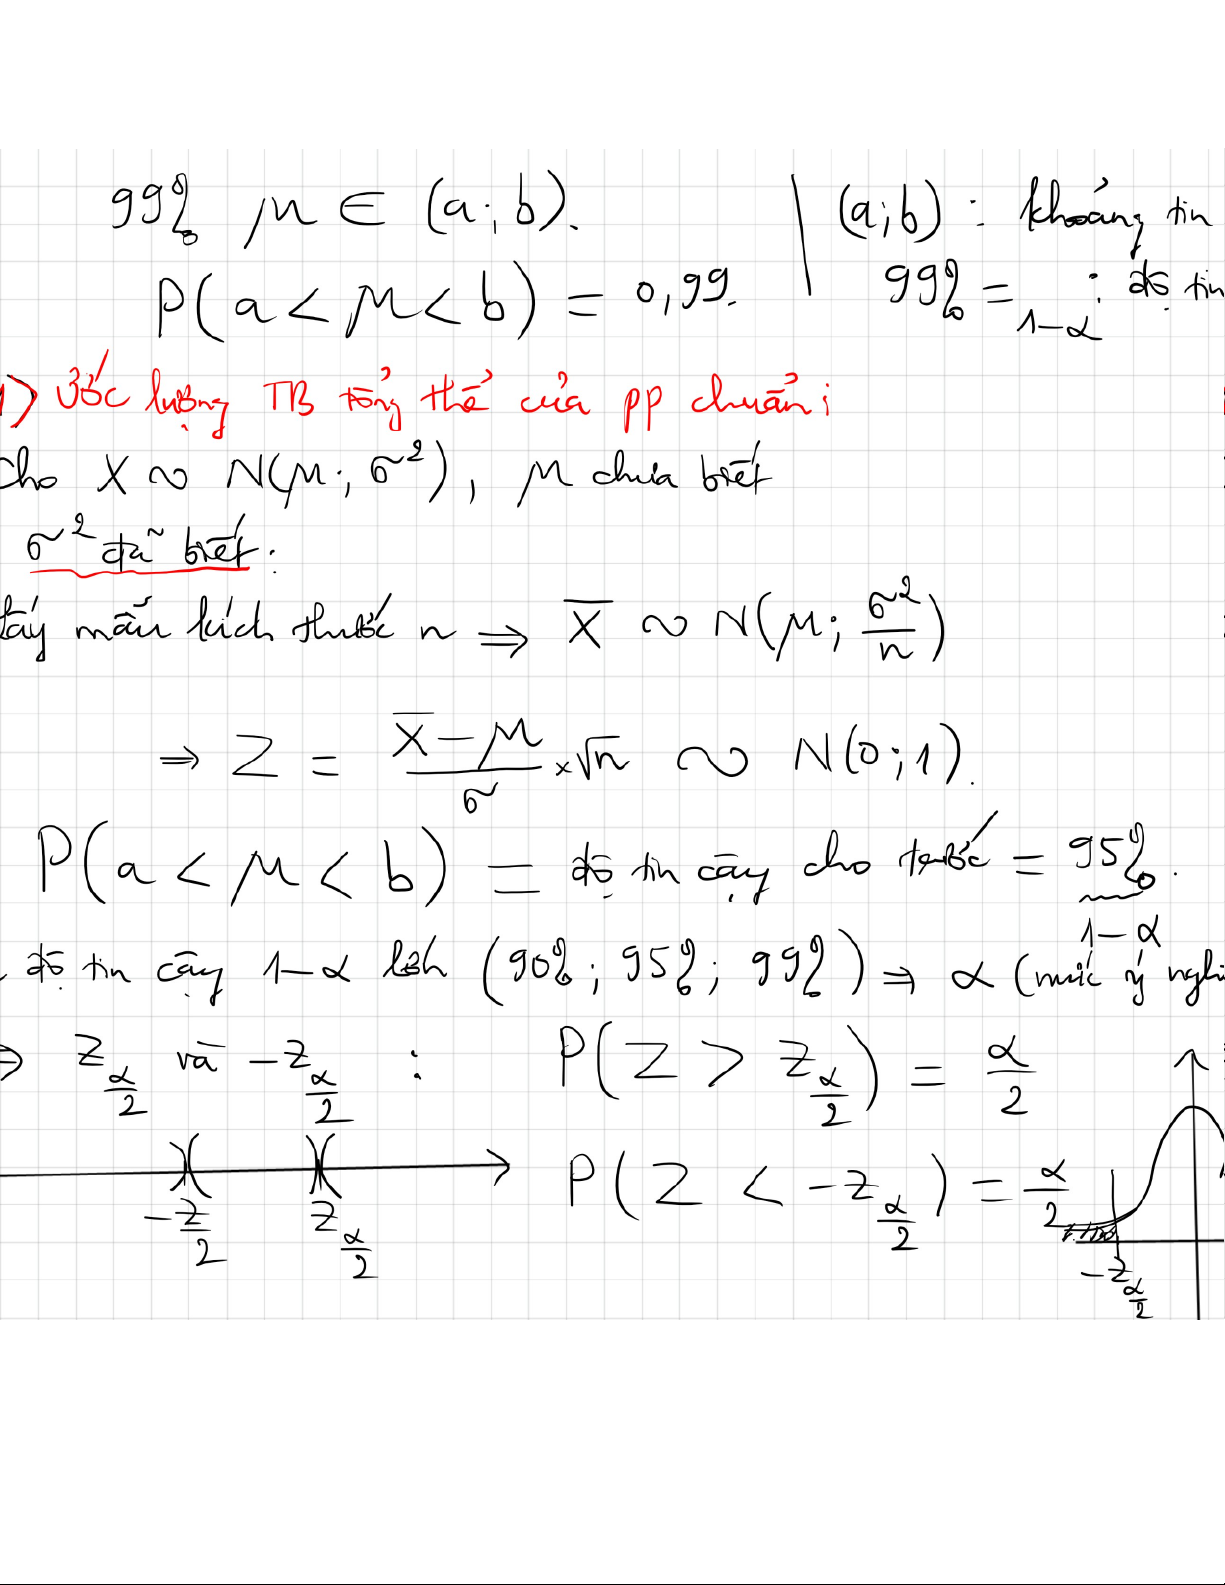 99% μ ∈ (a; b). | (a;b) : khoảng tin
P(a < μ < b) = 0,99. 99% = 1-α : độ tin
1) Ước lượng TB tổng thể của pp chuẩn:
Cho X ~ N(μ; σ²), μ chưa biết
σ² đã biết:
Lấy mẫu kích thước n ⇒ X̄ ~ N(μ; σ²/n)
⇒ Z = (X̄ - μ)/σ × √n ~ N(0;1).
P(a < μ < b) = độ tin cậy cho trước = 95%.
1-α
độ tin cậy 1-α lớn (90%; 95%; 99%) ⇒ α (mức ý
⇒ z_{α/2} và -z_{α/2} : P(Z > z_{α/2}) = α/2
P(Z < -z_{α/2}) = α/2
-z/2 z_{α/2}
-z_{α/2}